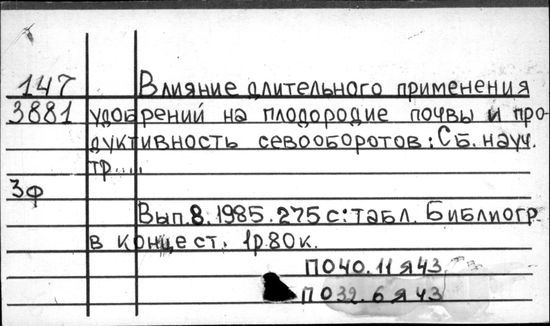 147 Влияние длительного применения
3881 удобрений на плодородие почвы и про-
дуктивность севооборотов: Сб. науч.
тр....
3ф
Вып.8.1985.275 с: табл. Библиогр.
в конце ст. 1р.80к.
П040.11Я43
П032.6Я43